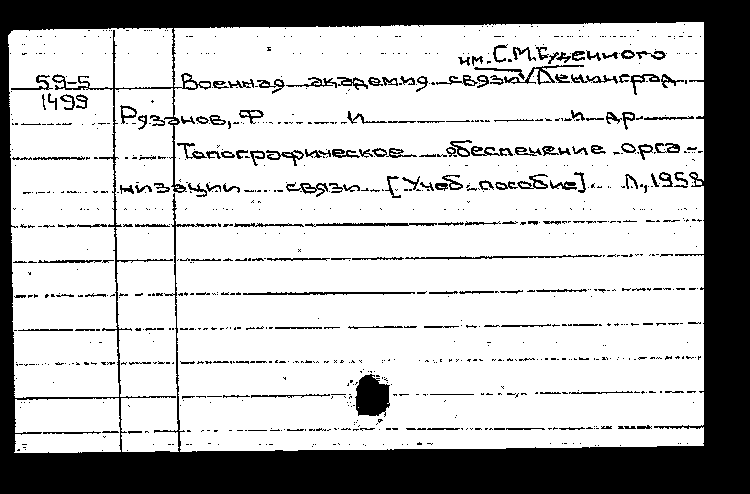 им. С.М.Буденного
59-5 Военная академия связи Ленинград
1499 Рязанов, Ф и п др
Топографическое обеспечение орга-
низации связи [Учеб. пособие]. Л., 1958